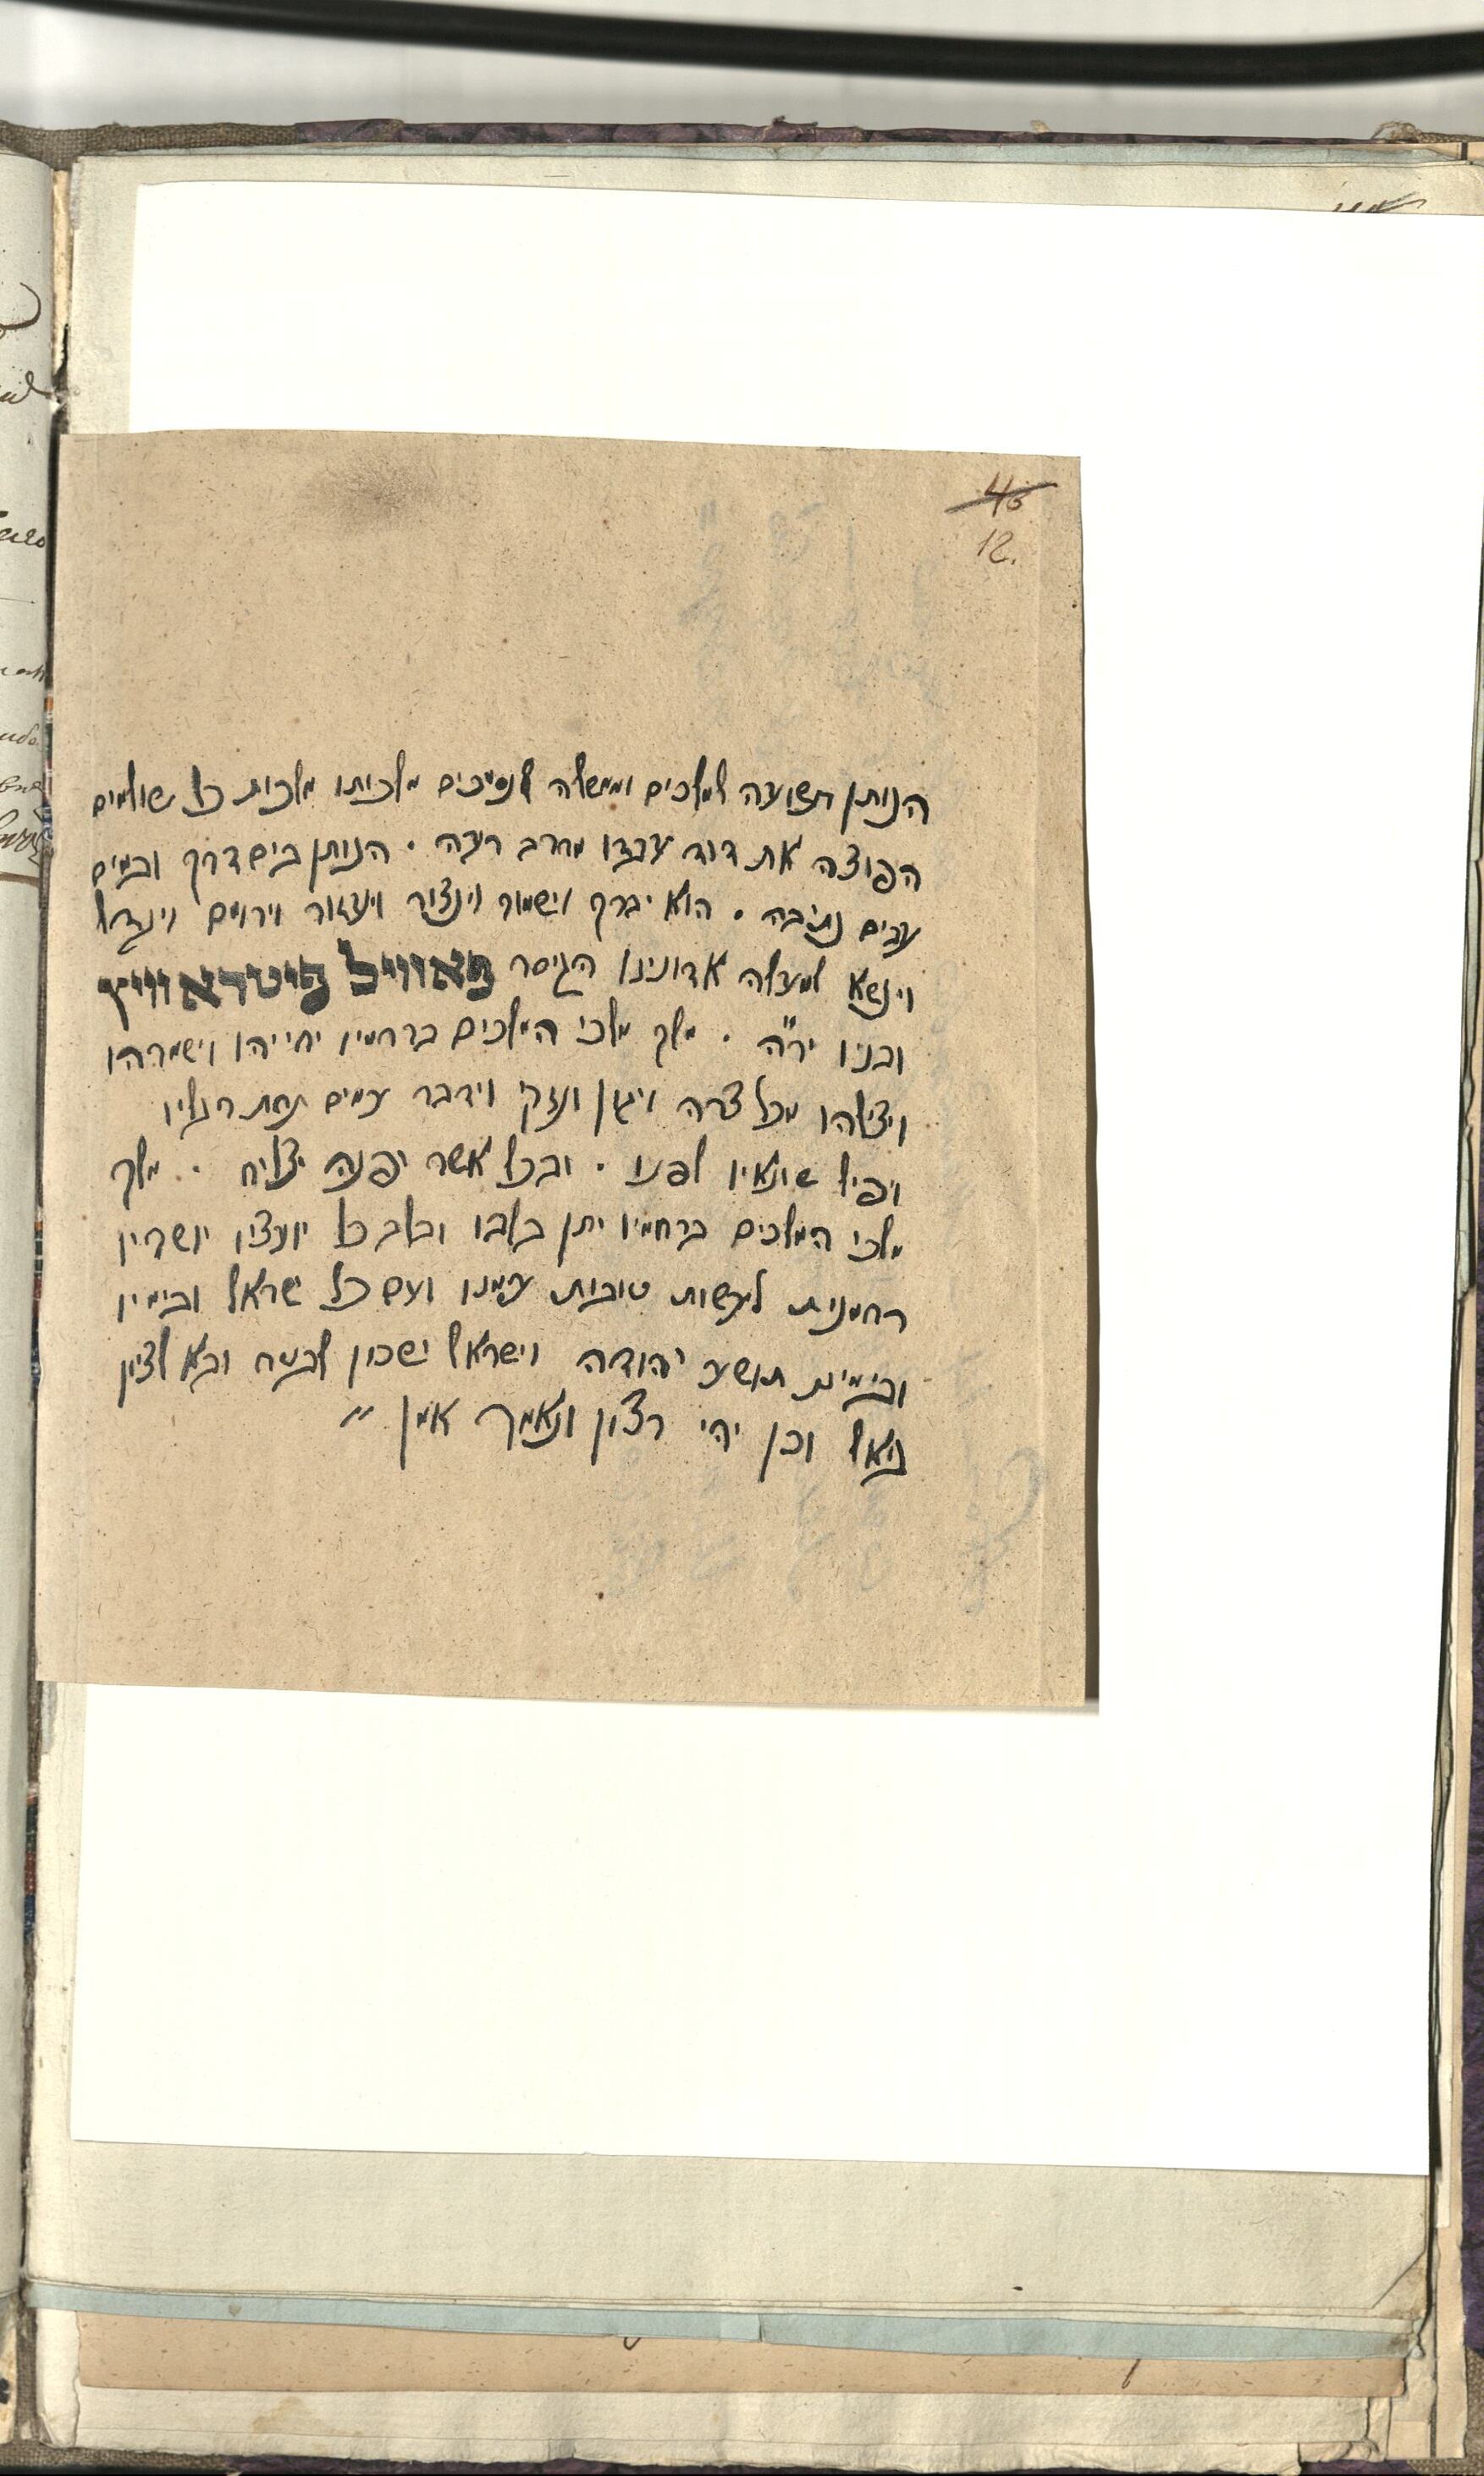 46
12.
הנותן תשועה למלכים וממשלה לנסיכים מלכותו מלכות כל עולמים
הפוצה את דוד עבדו מחרב רעה . הנותן בים דרך ובמים
עזים נתיבה . הוא יברך וישמור וינצור ויעזור וירומם ויגדל
וינשא למעלה אדונינו הקיסר פאוויל פיטראוויץ
ובניו יר״ה . מלך מלכי המלכים ברחמיו יחייהו וישמרהו
ויצילהו מכל צרה ויגון ונזק וידבר עמים תחת רגליו
ויפיל שונאיו לפניו . ובכל אשר יפנה יצליח . מלך
מלכי המלכים ברחמיו יתן בלבו ובלב כל יועציו ושריו
רחמנות לעשות טובות עמנו ועם כל ישראל ובימיו
ובימינו תושע יהודה וישראל ישכון לבטח ובא לציון
גואל וכן יהי רצון ונאמר אמן